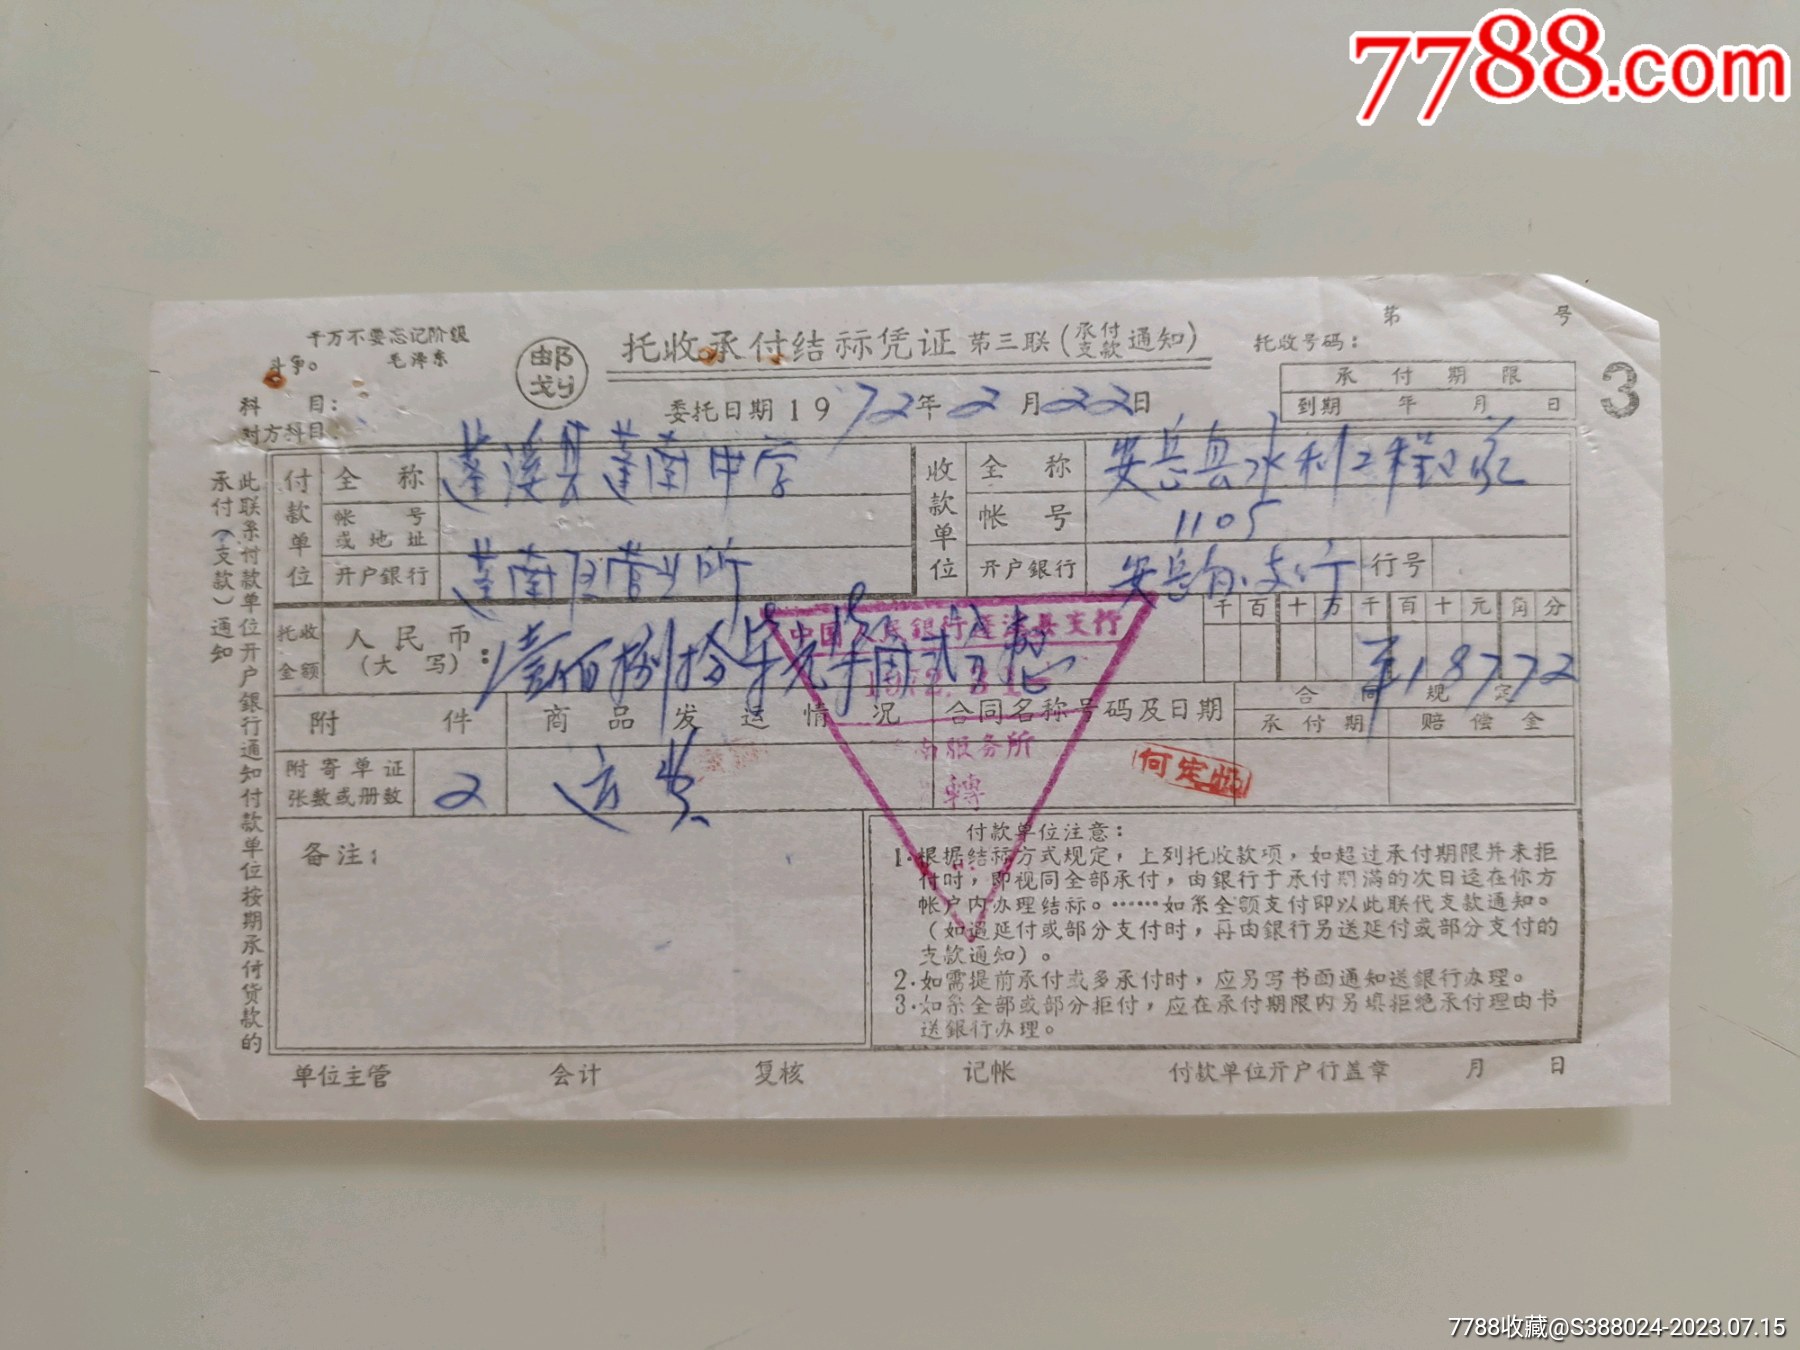 7788.com
千万不要忘记阶级
斗争。 毛泽东
邮
划
托收承付结标凭证 第三联(承付支款通知)
第 号
托收号码:
3
承付期限
到期 年 月 日
科 目:
对方科目:
委托日期1972年2月22日
付款单位
全 称
蓬溪县蓬南中学
收款单位
全 称
安岳县水利工程
帐 号
或地址
帐 号
1105
开户银行
蓬南区营业所
开户银行
安岳 支行
行号
托收
金额
人民币
(大 写):
壹佰捌拾柒元柒角弍分
千百十万千百十元角分
¥18772
附 件
商品发运情况
合同名称号码及日期
合同规定
承付期
赔偿金
附寄单证
张数或册数
2
运费
中国人民银行蓬溪县支行
南服务所
轉
备注:
付款单位注意:
1.根据结标方式规定,上列托收款项,如超过承付期限并未拒
付时,即视同全部承付,由银行于承付期满的次日迳在你方
帐户内办理结标。……如系全额支付即以此联代支款通知。
(如遇延付或部分支付时,再由银行另送延付或部分支付的
支款通知)。
2.如需提前承付或多承付时,应另写书面通知送银行办理。
3.如系全部或部分拒付,应在承付期限内另填拒绝承付理由书
送银行办理。
此联系付款单位开户银行通知付款单位按期承付货款的
承付(支款)通知
单位主管 会计 复核 记帐 付款单位开户行盖章 月 日
7788收藏@S388024-2023.07.15